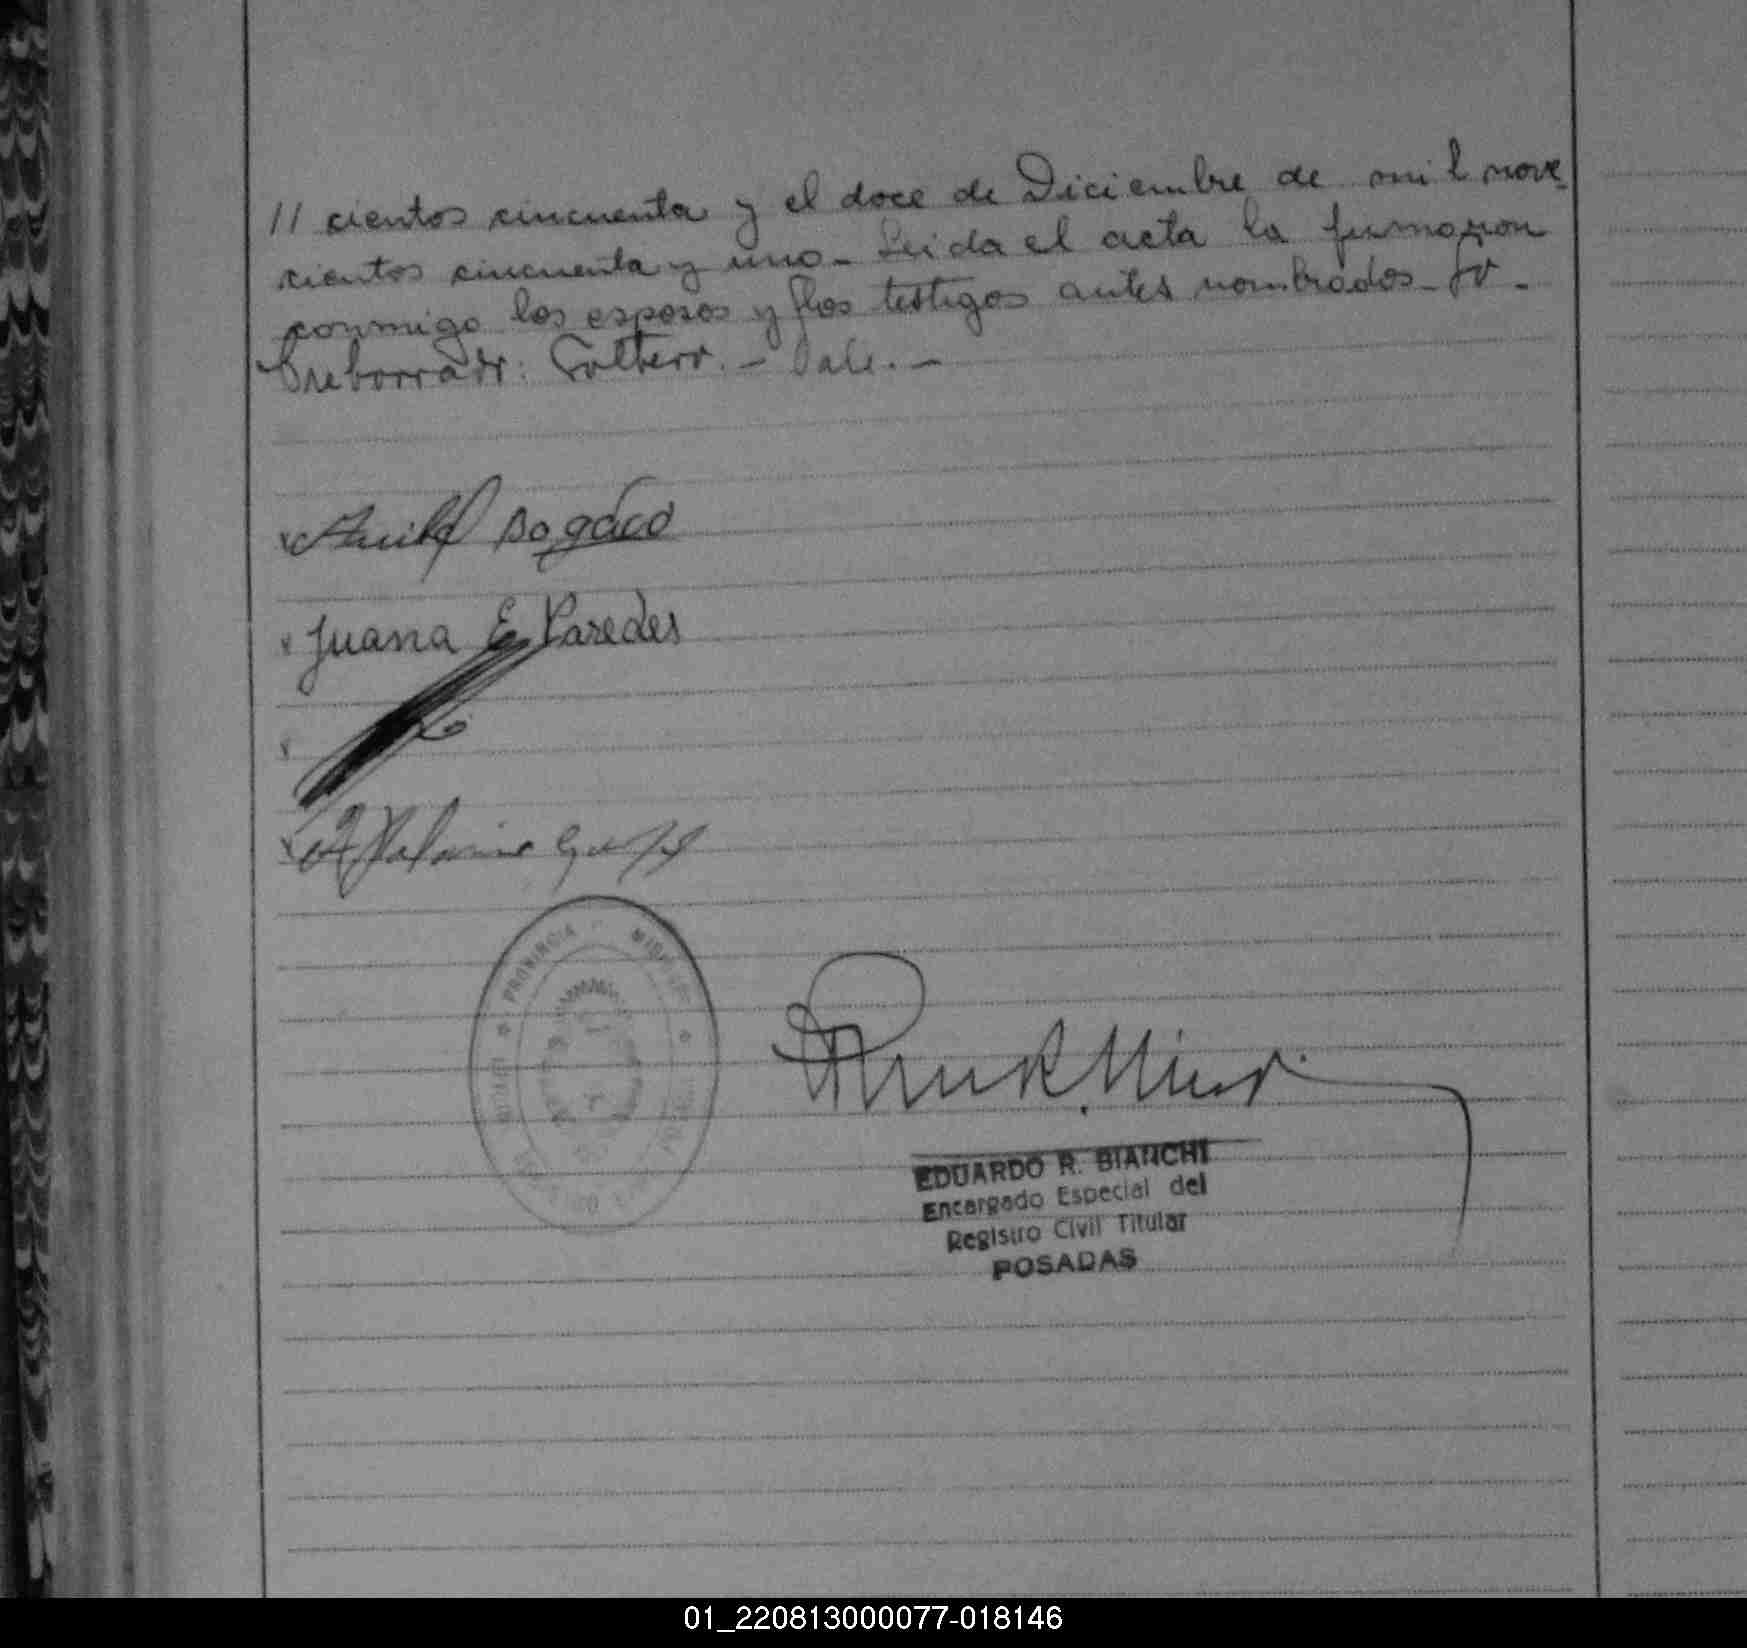 // cientos cincuenta y el doce de Diciembre de mil nove-
cientos cincuenta y uno - Leida el acta la firmaron
conmigo los esposos y los testigos antes nombrados -
Sreborrado: Soltero. - Vale. -
Bogado
Juana E Paredes
PROVINCIA MISIONES
EDUARDO R. BIANCHI
Encargado Especial del
Registro Civil Titular
POSADAS
01_220813000077-018146